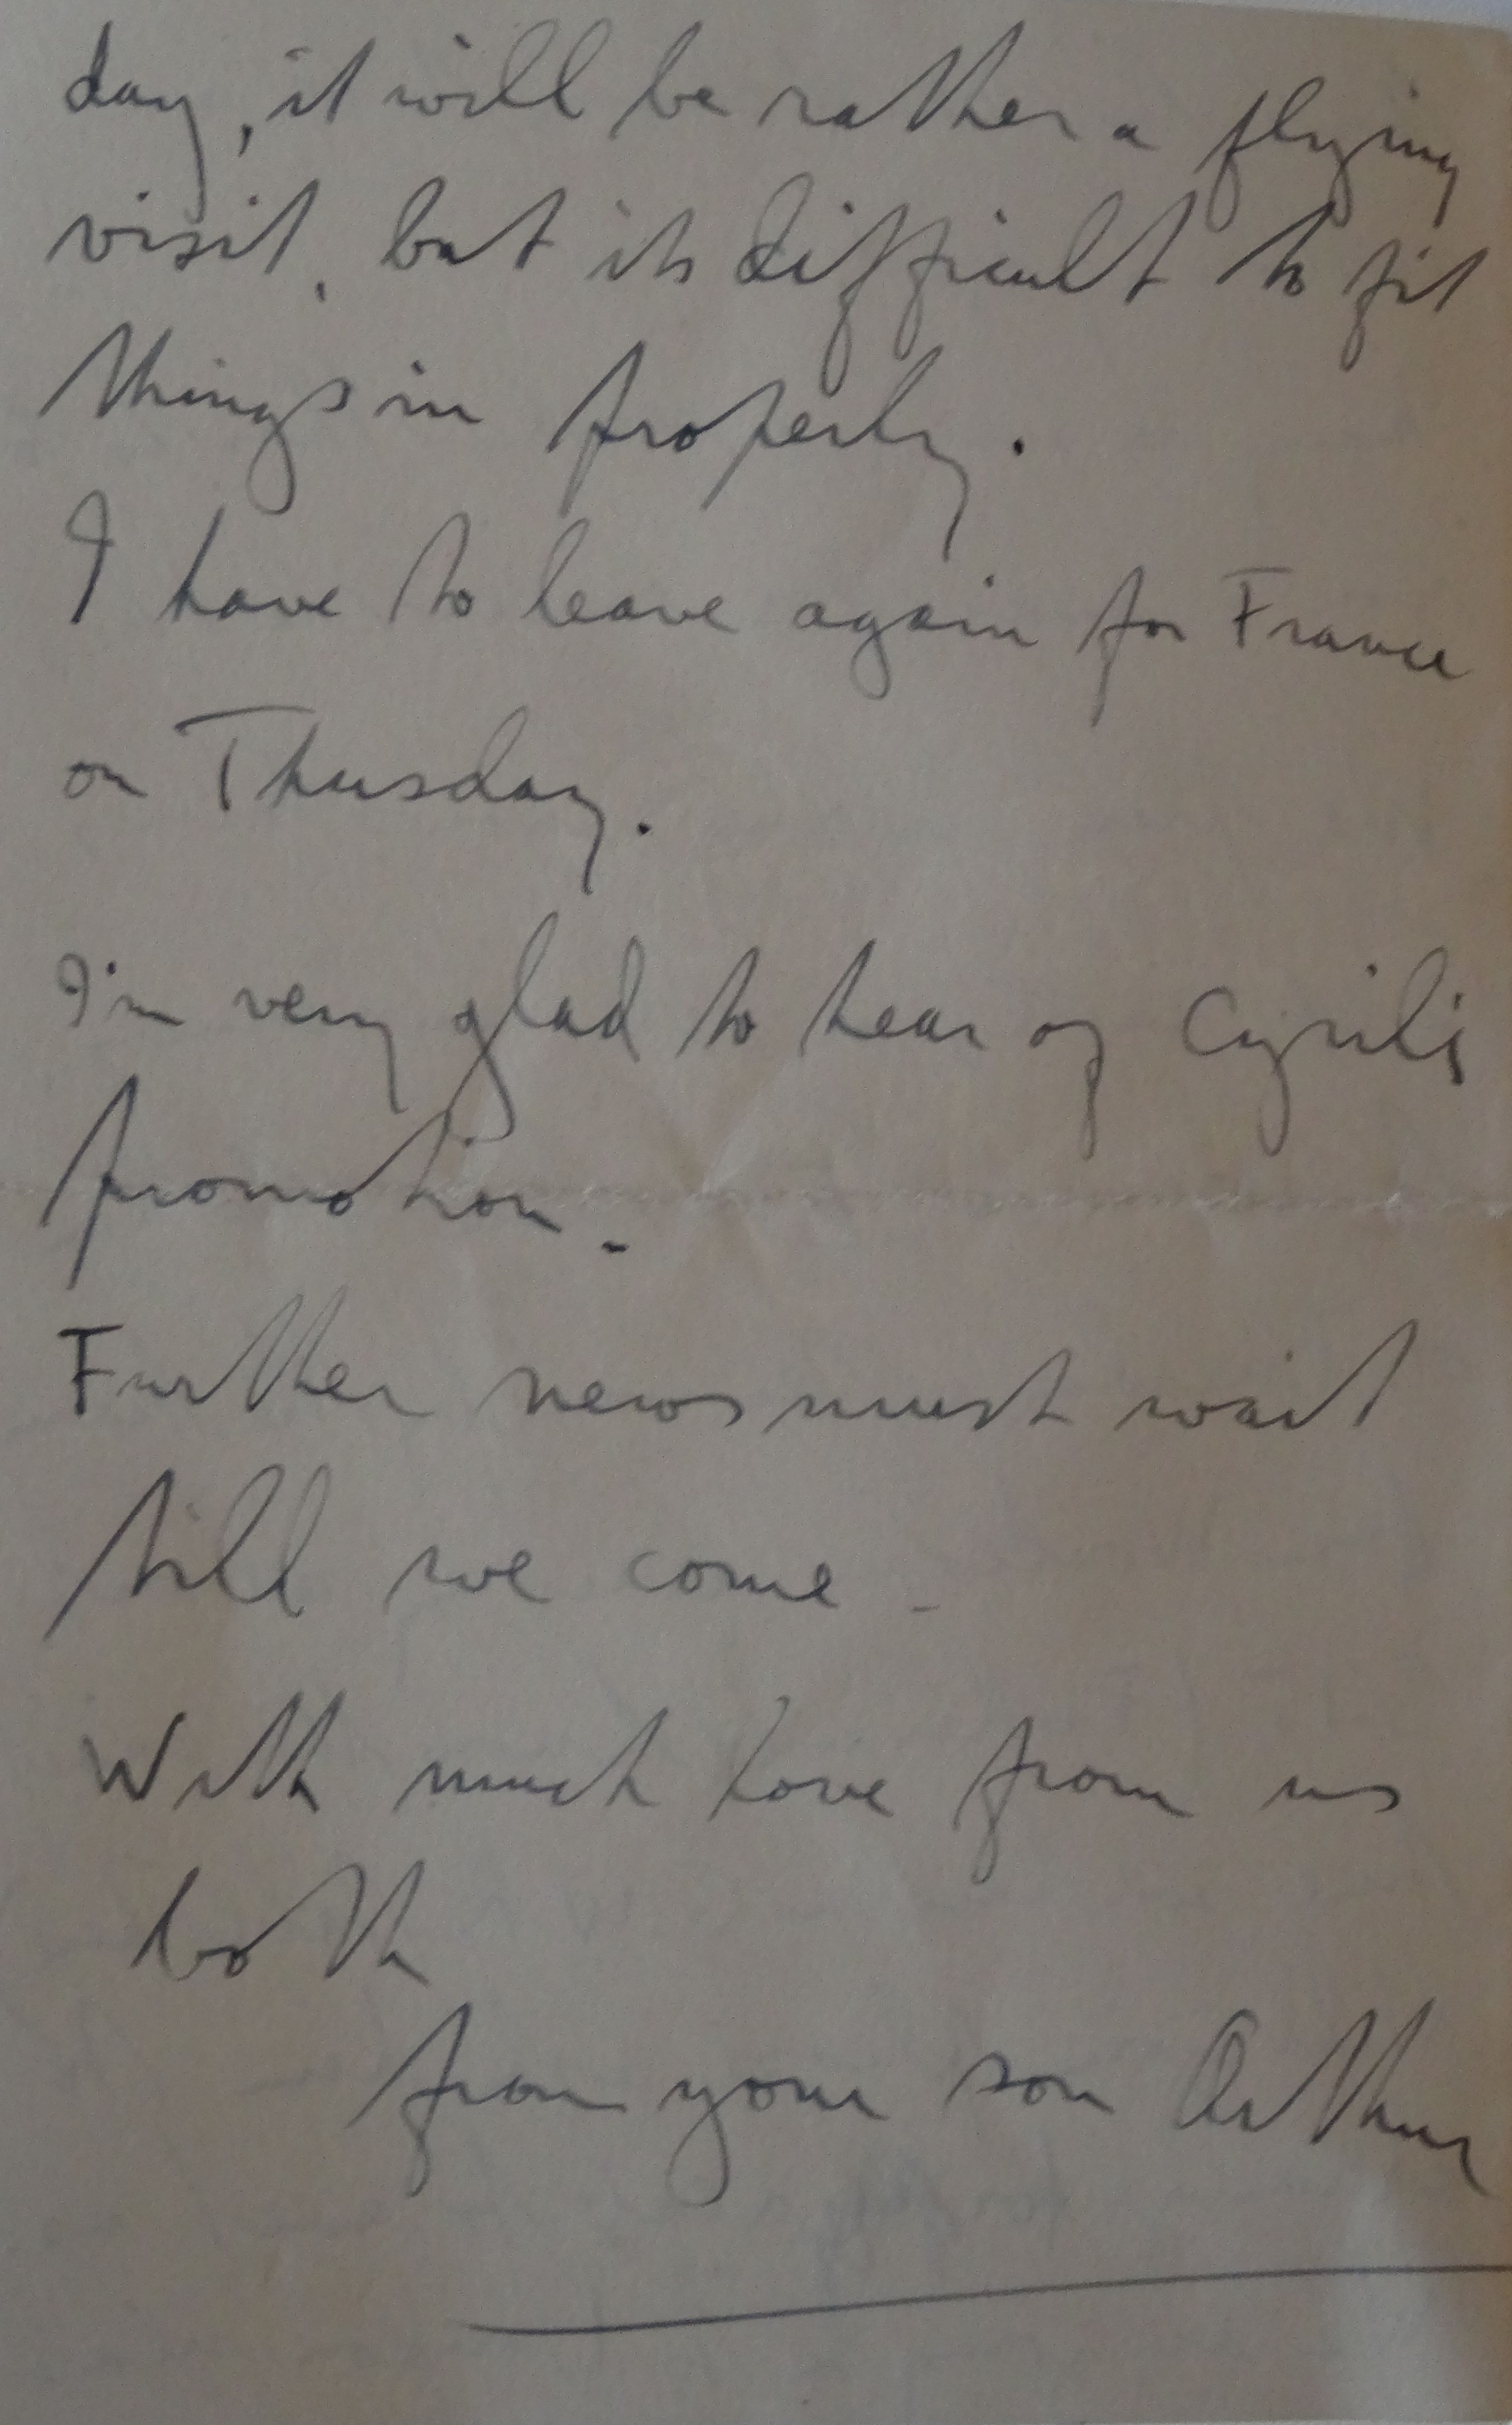 day, it will be rather a flying
visit, but its difficult to fit
things in properly.
I have to leave again for France
on Thursday.
I'm very glad to hear of Cyril's
promotion.
Further news must wait
till we come.
With much love from us
both
from your son Arthur